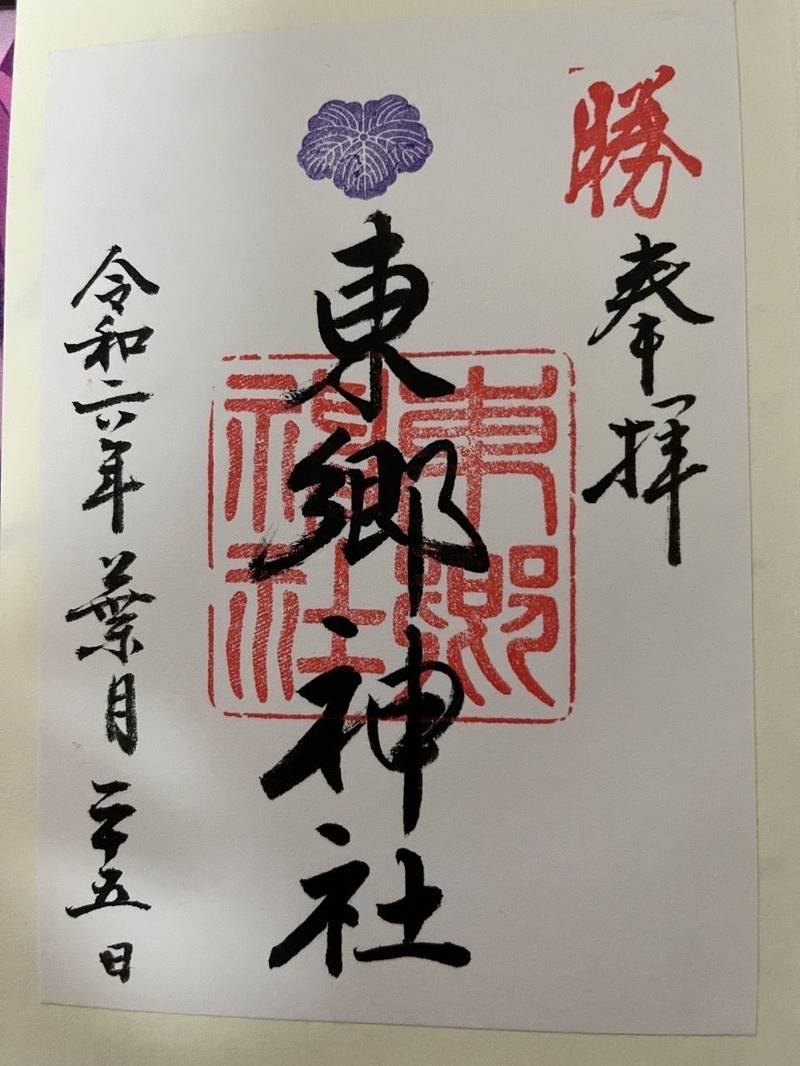 勝
奉拝
東郷神社
東郷神社
令和六年葉月二十五日